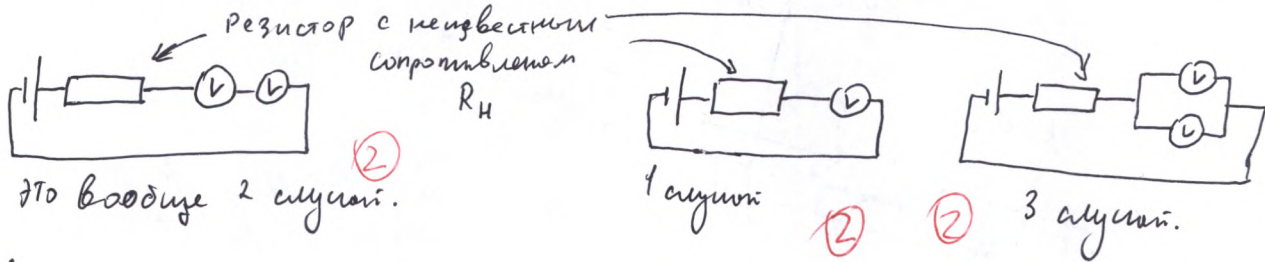 Резистор с неизвестным
сопротивлением
Rн
V V
V
V
V
②
Это вообще 2 случай.
1 случай
②
②
3 случай.